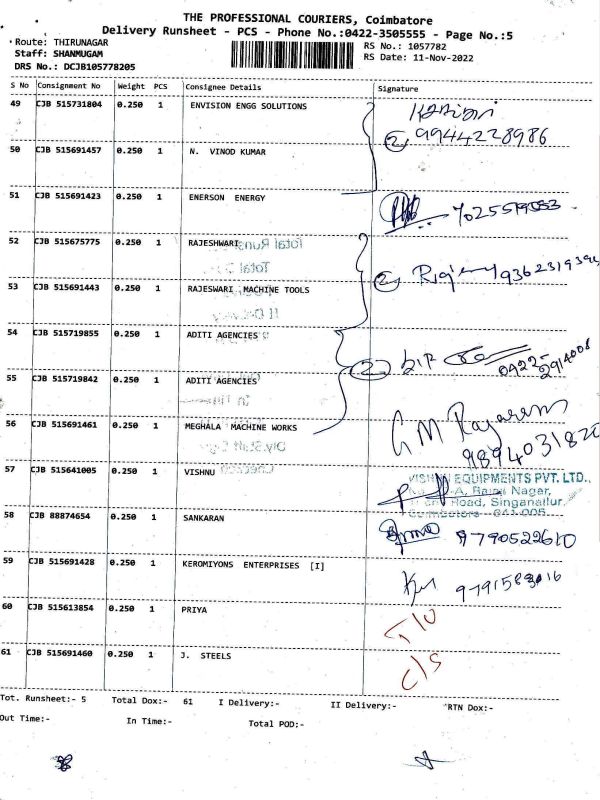 THE PROFESSIONAL COURIERS, Coimbatore
Delivery Runsheet - PCS - Phone No.:0422-3505555 - Page No.:5
Route: THIRUNAGAR
RS No.: 1057782
Staff: SHANMUGAM
RS Date: 11-Nov-2022
DRS No.: DCJB105778205
S No Consignment No Weight PCS Consignee Details Signature
49 CJB 515731804 0.250 1 ENVISION ENGG SOLUTIONS
② 9944228986
50 CJB 515691457 0.250 1 N. VINOD KUMAR
51 CJB 515691423 0.250 1 ENERSON ENERGY
52 CJB 515675775 0.250 1 RAJESHWARI
② 9362319394
53 CJB 515691443 0.250 1 RAJESWARI MACHINE TOOLS
54 CJB 515719855 0.250 1 ADITI AGENCIES
② 0422-2914008
55 CJB 515719842 0.250 1 ADITI AGENCIES
56 CJB 515691461 0.250 1 MEGHALA MACHINE WORKS
G M Rajaram
9894031820
57 CJB 515641005 0.250 1 VISHNU
EQUIPMENTS PVT. LTD.,
Nagar,
Road, Singanallur,
58 CJB 88874654 0.250 1 SANKARAN
9790522610
59 CJB 515691428 0.250 1 KEROMIYONS ENTERPRISES [I]
9791583016
60 CJB 515613854 0.250 1 PRIYA
61 CJB 515691460 0.250 1 J. STEELS
C/S
Tot. Runsheet:- 5 Total Dox:- 61 I Delivery:- II Delivery:- RTN Dox:-
Out Time:- In Time:- Total POD:-